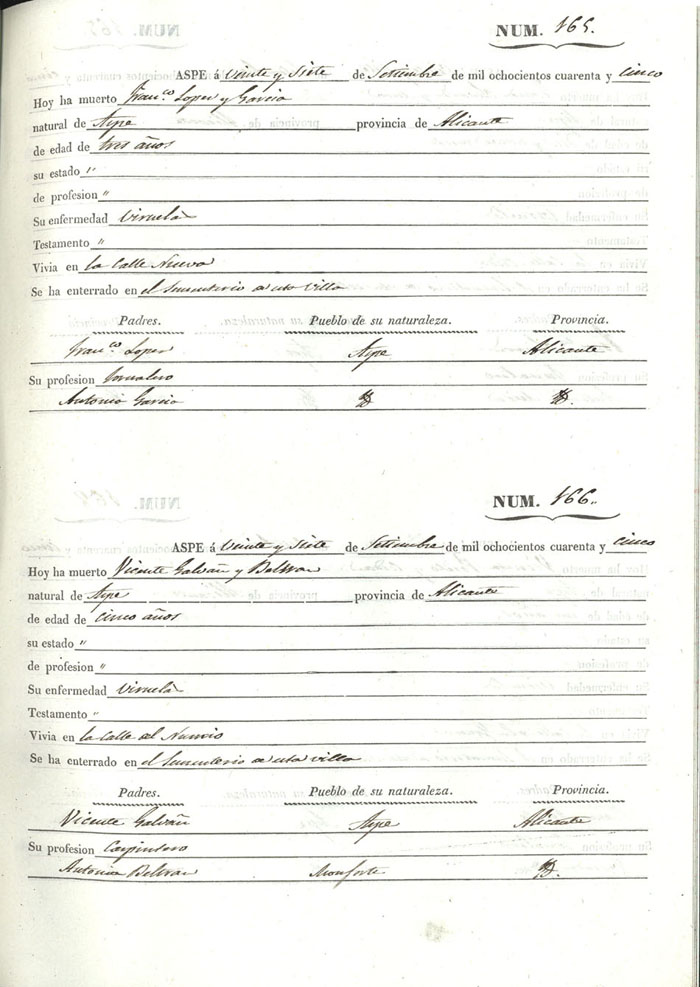 NUM. 165.
ASPE á Veinte y Siete de Setiembre de mil ochocientos cuarenta y cinco
Hoy ha muerto Franco. Lopez y Garcia
natural de Aspe provincia de Alicante
de edad de tres años
su estado "
de profesion "
Su enfermedad Viruela
Testamento "
Vivia en la Calle Nueva
Se ha enterrado en el Sementerio de esta Villa
Padres. Pueblo de su naturaleza. Provincia.
Franco. Lopez Aspe Alicante
Su profesion Jornalero
Antonia Garcia
NUM. 166.
ASPE á Veinte y Siete de Setiembre de mil ochocientos cuarenta y cinco
Hoy ha muerto Vicente Galvañ y Beltran
natural de Aspe provincia de Alicante
de edad de cinco años
su estado "
de profesion "
Su enfermedad Viruela
Testamento "
Vivia en la Calle del Nuncio
Se ha enterrado en el Sementerio de esta villa
Padres. Pueblo de su naturaleza. Provincia.
Vicente Galvañ Aspe Alicante
Su profesion Carpintero
Antonia Beltran Monforte